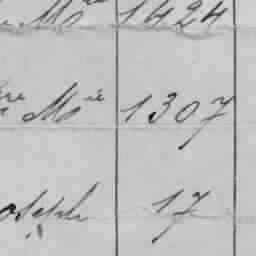 Mᵉ 1424
re Mᵉ 1307
oseph 17